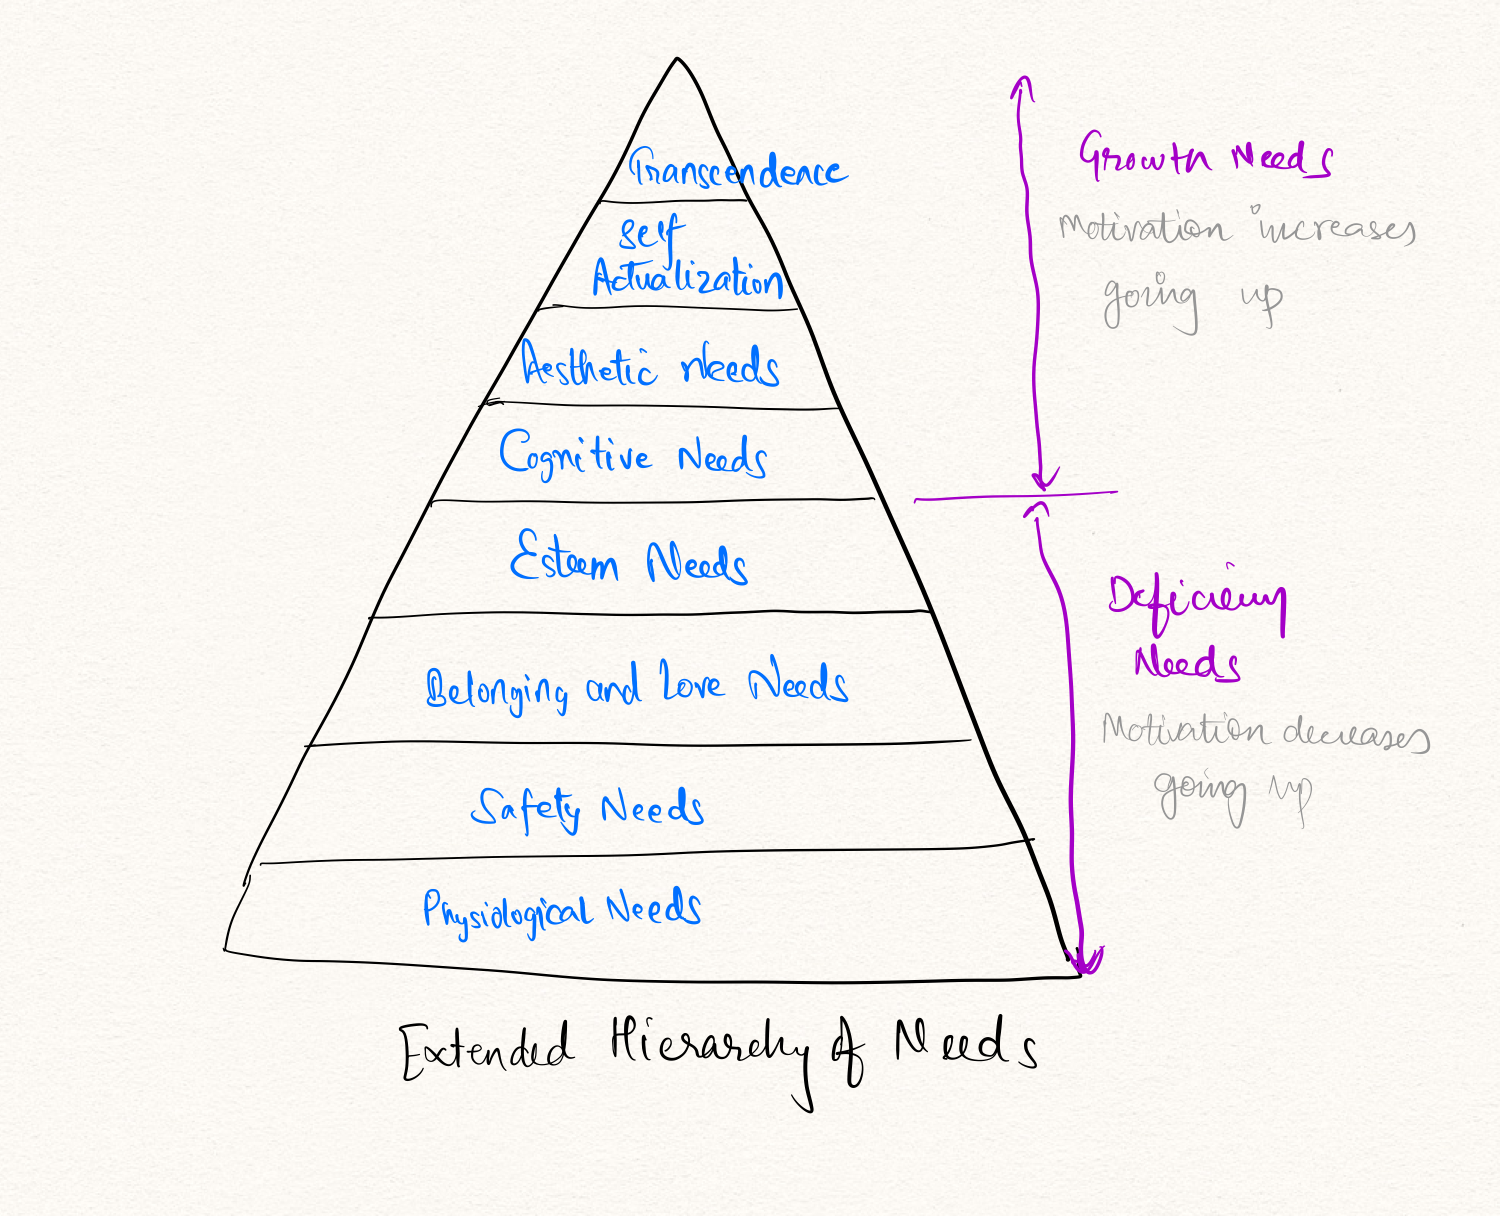 Transcendence
Self
Actualization
Aesthetic Needs
Cognitive Needs
Esteem Needs
Belonging and Love Needs
Safety Needs
Physiological Needs
Growth Needs
Motivation increases
going up
Deficiency
Needs
Motivation decreases
going up
Extended Hierarchy of Needs